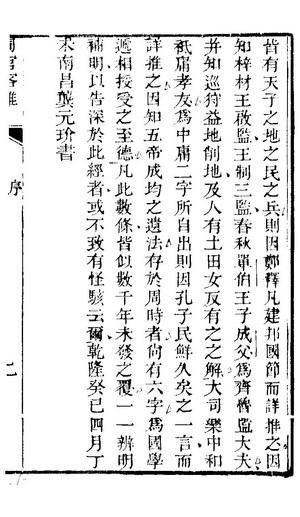 皆有天子之地之民之兵則因鄭釋凡建邦國節而詳推之因
知梓材王啟監王制三監春秋單伯王子成父爲齊魯監大夫
并知巡狩益地削地及人有土田女反有之之解大司樂中和
祇庸孝友爲中庸二字所自出則因孔子民鮮久矣之一言而
詳推之因知五帝成均之遺法存於周時者尚有六字爲國學
遞相授受之至德凡此數條皆似數千年未發之覆一一辨明
補明以告深於此經者或不致有怪駭云爾乾隆癸巳四月丁
未南昌龔元玠書
周官客難
序
七